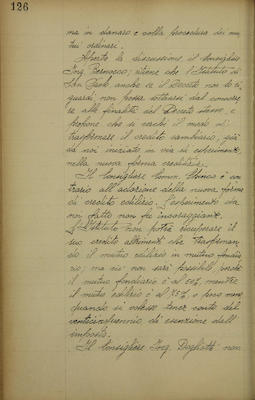 126
ma in denaro e colla procedura dei mu
tui ordinari.
Aperta la discussione il Consigliere
Ing. Bernocco, ritiene che l'Istituto di
San Paolo anche se il Decreto non lo ri
guardi non possa esimersi dal concorre
re alle finalità del Decreto stesso e
propone che si cerchi il modo di
trasformare il credito cambiario, già
da noi iniziato in via di esperimento
nella nuova forma creditizia.
Il Consigliere Comm. è con
trario all'adozione della nuova forma
di credito edilizio. L'esperimento da
noi fatto non fu incoraggiante.
L'Istituto non potrà ricuperare il
suo credito altrimenti che trasforman
do il mutuo edilizio in mutuo fondia
rio, ma ciò non sarà possibile perchè
il mutuo fondiario è al 50%, mentre
il mutuo edilizio è al 75%, e però meno
quando si volesse tener conto del
venticinquennio di esenzione dall'
imposta.
Il Consigliere Ing. non